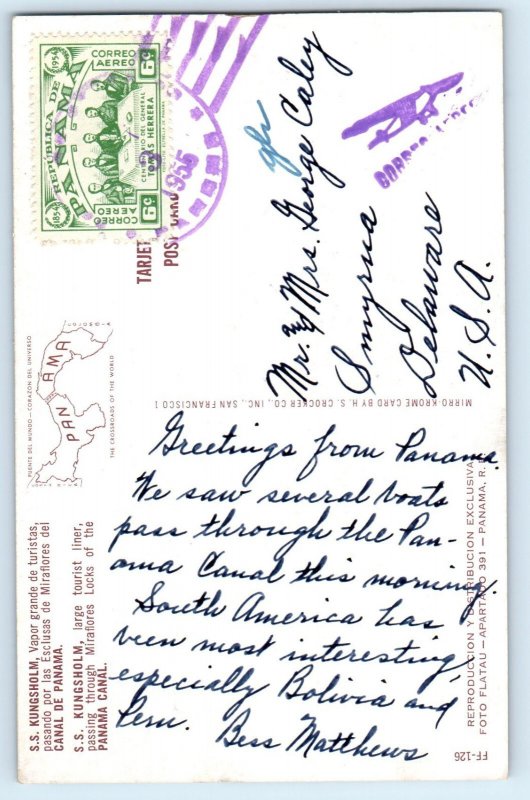 REPUBLICA DE
PANAMA
1854
1954
CORREO
AEREO
6¢
CENTENARIO DEL GENERAL
TOMAS HERRERA
CORREO
AEREO
6¢
1955
PANAMA
CORREO AEREO
TARJE
POST CARD
Mr. & Mrs. George Caley
Smyrna
Delaware
U.S.A.
MIRRO-KROME CARD BY H. S. CROCKER CO., INC., SAN FRANCISCO 1
PUENTE DEL MUNDO — CORAZON DEL UNIVERSO
PANAMA
THE CROSSROADS OF THE WORLD
Greetings from Panama.
We saw several boats
pass through the Pan-
ama Canal this morning.
South America has
been most interesting,
especially Bolivia and
Peru. Bess Matthews
S.S. KUNGSHOLM, Vapor grande de turistas,
pasando por las Esclusas de Miraflores del
CANAL DE PANAMA.
S.S. KUNGSHOLM, large tourist liner,
passing through Miraflores Locks of the
PANAMA CANAL.
REPRODUCCION Y DISTRIBUCION EXCLUSIVA
FOTO FLATAU — APARTADO 391 — PANAMA, R.
FF-126